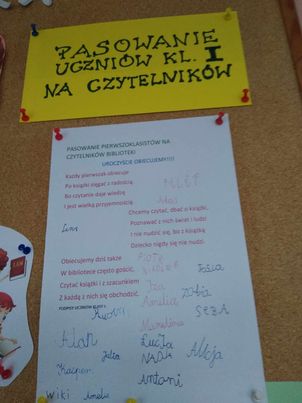 PASOWANIE
UCZNIÓW KL. I
NA CZYTELNIKÓW
PASOWANIE PIERWSZOKLASISTÓW NA
CZYTELNIKÓW BIBLIOTEKI
UROCZYŚCIE OBIECUJEMY!!!!
Każdy pierwszak obiecuje
Po książki sięgać z radością
Bo czytanie daje wiedzę
I jest wielką przyjemnością.
Chcemy czytać, dbać o książki,
Poznawać z nich świat i ludzi
I nie nudzić się, bo z książką
Dziecko nigdy się nie nudzi.
Obiecujemy dziś także
W bibliotece często gościć,
Czytać książki i z szacunkiem
Z każdą z nich się obchodzić.
PODPISY UCZNIÓW KLASY I
Iza
Zosia
Amelia
SEBA
Alan
Łucja
Julia
NADIA
Alicja
Kacper
Antoni
Wiki
Amelia